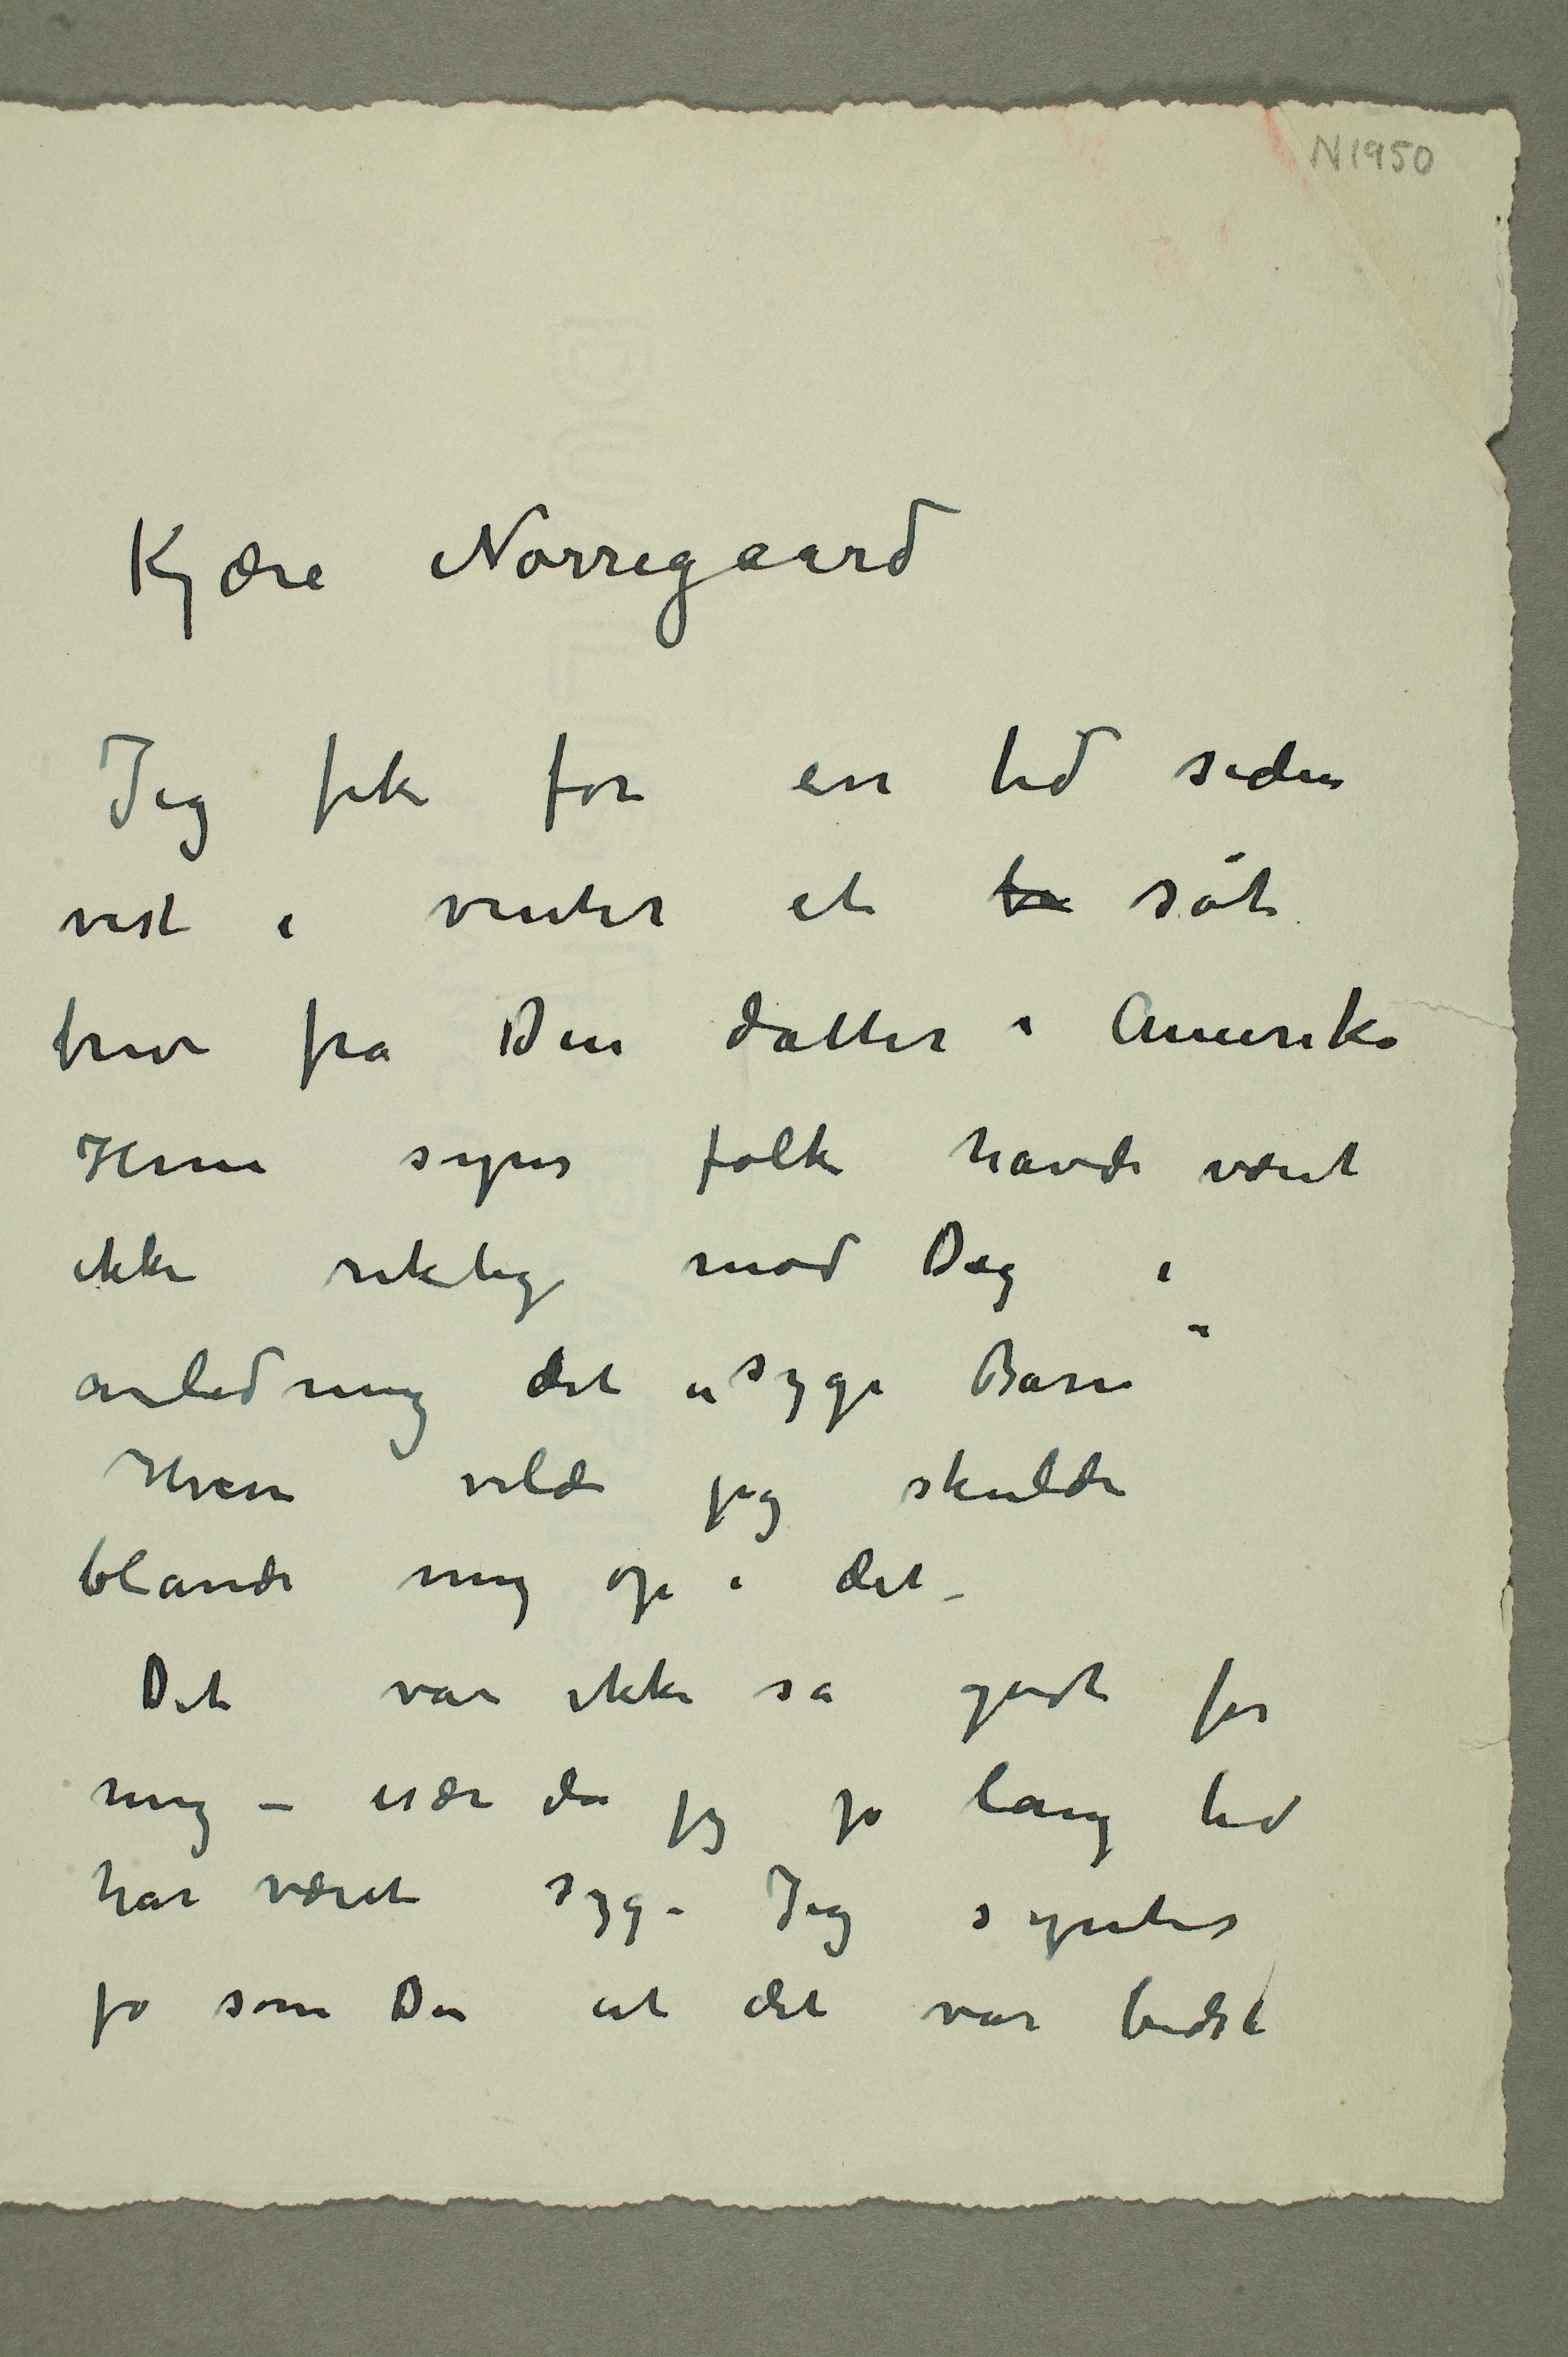 N1950
Kjære Nørregaard
Jeg fik for en tid siden
vist i vinter et søt
brev fra Din datter i Amerika
Hun synes folk havde vært
ikke riktig mod Dig i
anledning det „syge Barn“
Hun vilde jeg skulde
blande mig op i det –
Det var ikke så godt for
mig – især da jeg jo lang tid
har været syg – Jeg syntes
jo som Du at det var bedst